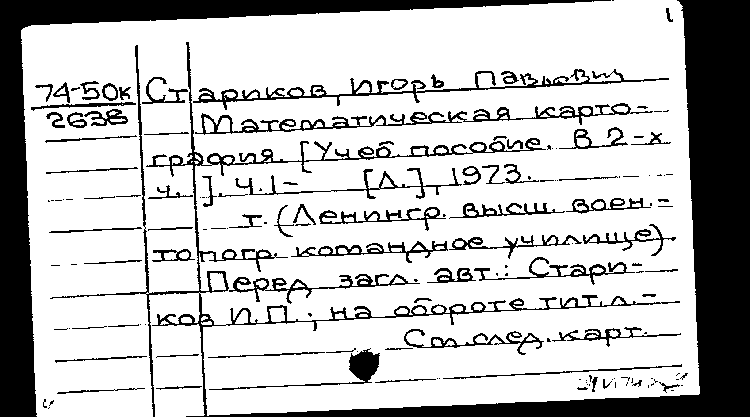 1
74-50к Стариков, Игорь Павлович
2638 Математическая карто-
графия. [Учеб. пособие. В 2-х
ч. ]. Ч.1- [Л.], 1973.
т. (Ленингр. высш. воен.-
топогр. командное училище).
Перед загл. авт.: Стари-
ков И.П.; на обороте тит.л.-
См.след.карт.